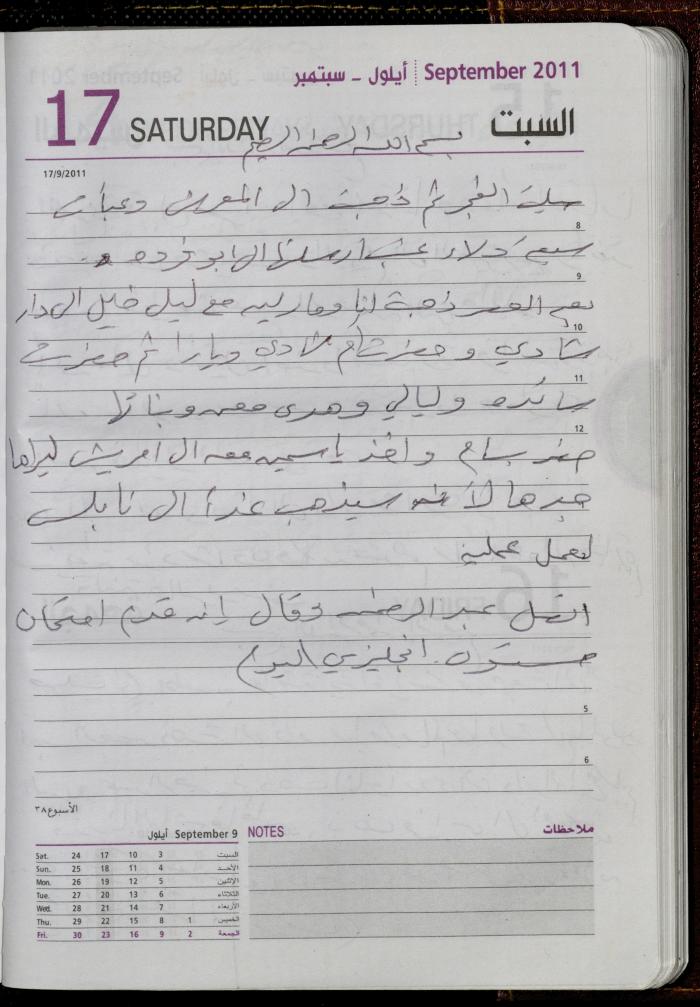 September 2011 أيلول - سبتمبر
17 SATURDAY السبت
بسم الله الرحمن الرحيم
17/9/2011
صليت الفجر ثم ذهبت الى
8
سبع دولار أرسلتها الى ابو فرده
9
بعد العصر ذهبت انا مع ليلى خليل الى دار
10
شادي و حضرت ام شادي ويارا ثم حضرت
11
سائده وليالي وهدى معهم وبناتها
12
حضر بسام واخذ ياسمين معه الى امريش ليراها
جدها لأنه سيذهب غداً الى نابلس
لعمل عملية
اتصل عبد الرحمن وقال إنه قدم امتحان
مستوى انجليزي اليوم
5
6
الأسبوع ٣٨
أيلول September 9
Sat. 24 17 10 3 السبت
Sun. 25 18 11 4 الأحد
Mon. 26 19 12 5 الإثنين
Tue. 27 20 13 6 الثلاثاء
Wed. 28 21 14 7 الأربعاء
Thu. 29 22 15 8 1 الخميس
Fri. 30 23 16 9 2 الجمعة
NOTES ملاحظات